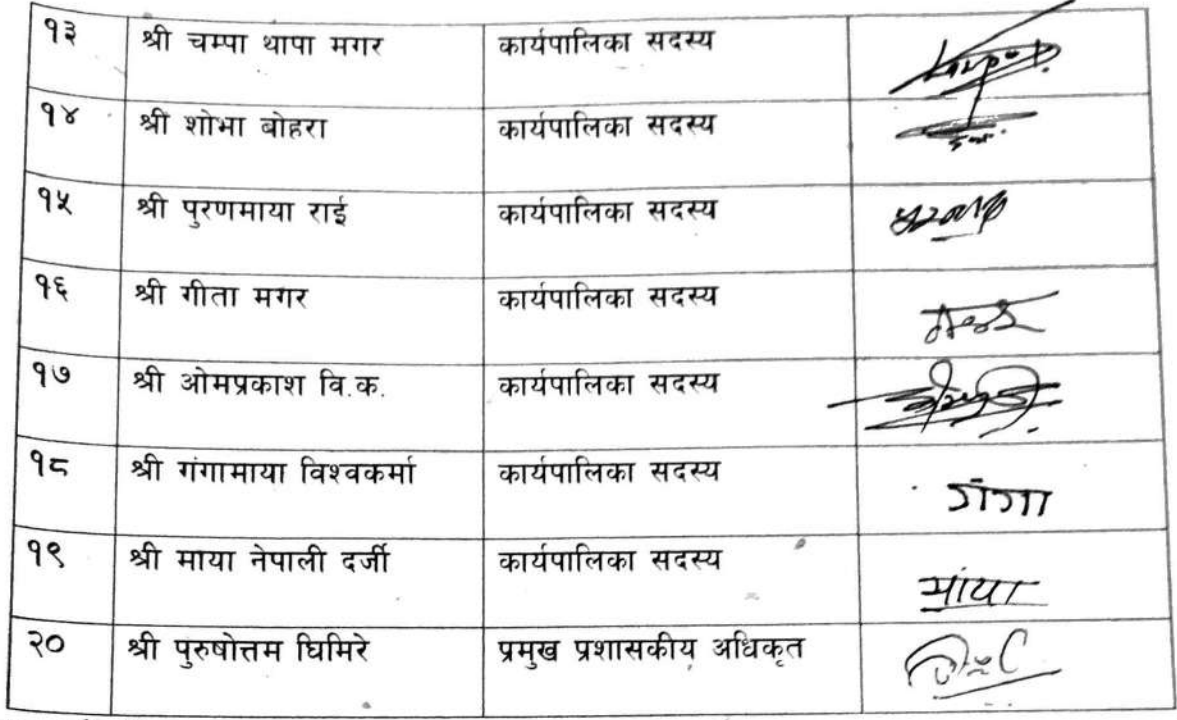 १३ श्री चम्पा थापा मगर कार्यपालिका सदस्य
१४ श्री शोभा बोहरा कार्यपालिका सदस्य
१५ श्री पुरणमाया राई कार्यपालिका सदस्य
१६ श्री गीता मगर कार्यपालिका सदस्य
१७ श्री ओमप्रकाश वि.क. कार्यपालिका सदस्य
१८ श्री गंगामाया विश्वकर्मा कार्यपालिका सदस्य गंगा
१९ श्री माया नेपाली दर्जी कार्यपालिका सदस्य माया
२० श्री पुरुषोत्तम घिमिरे प्रमुख प्रशासकीय अधिकृत